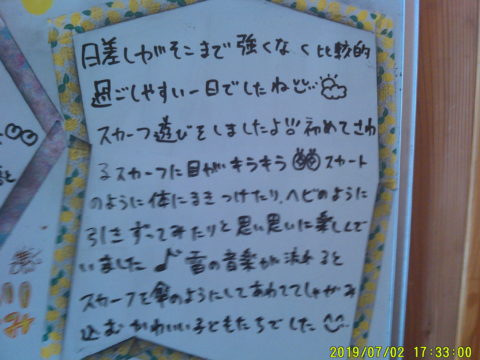 日差しがそこまで強くなく比較的
過ごしやすい一日でしたね
スカーフ遊びをしましたよ!! 初めてさわ
るスカーフに目がキラキラ スカート
のように体にまきつけたり、ヘビのように
引きずってみたりと思い思いに楽しんで
いました♪ 雷の音楽が流れると
スカーフを傘のようにしてあわててしゃがみ
込むかわいい子どもたちでした
2019/07/02 17:33:00